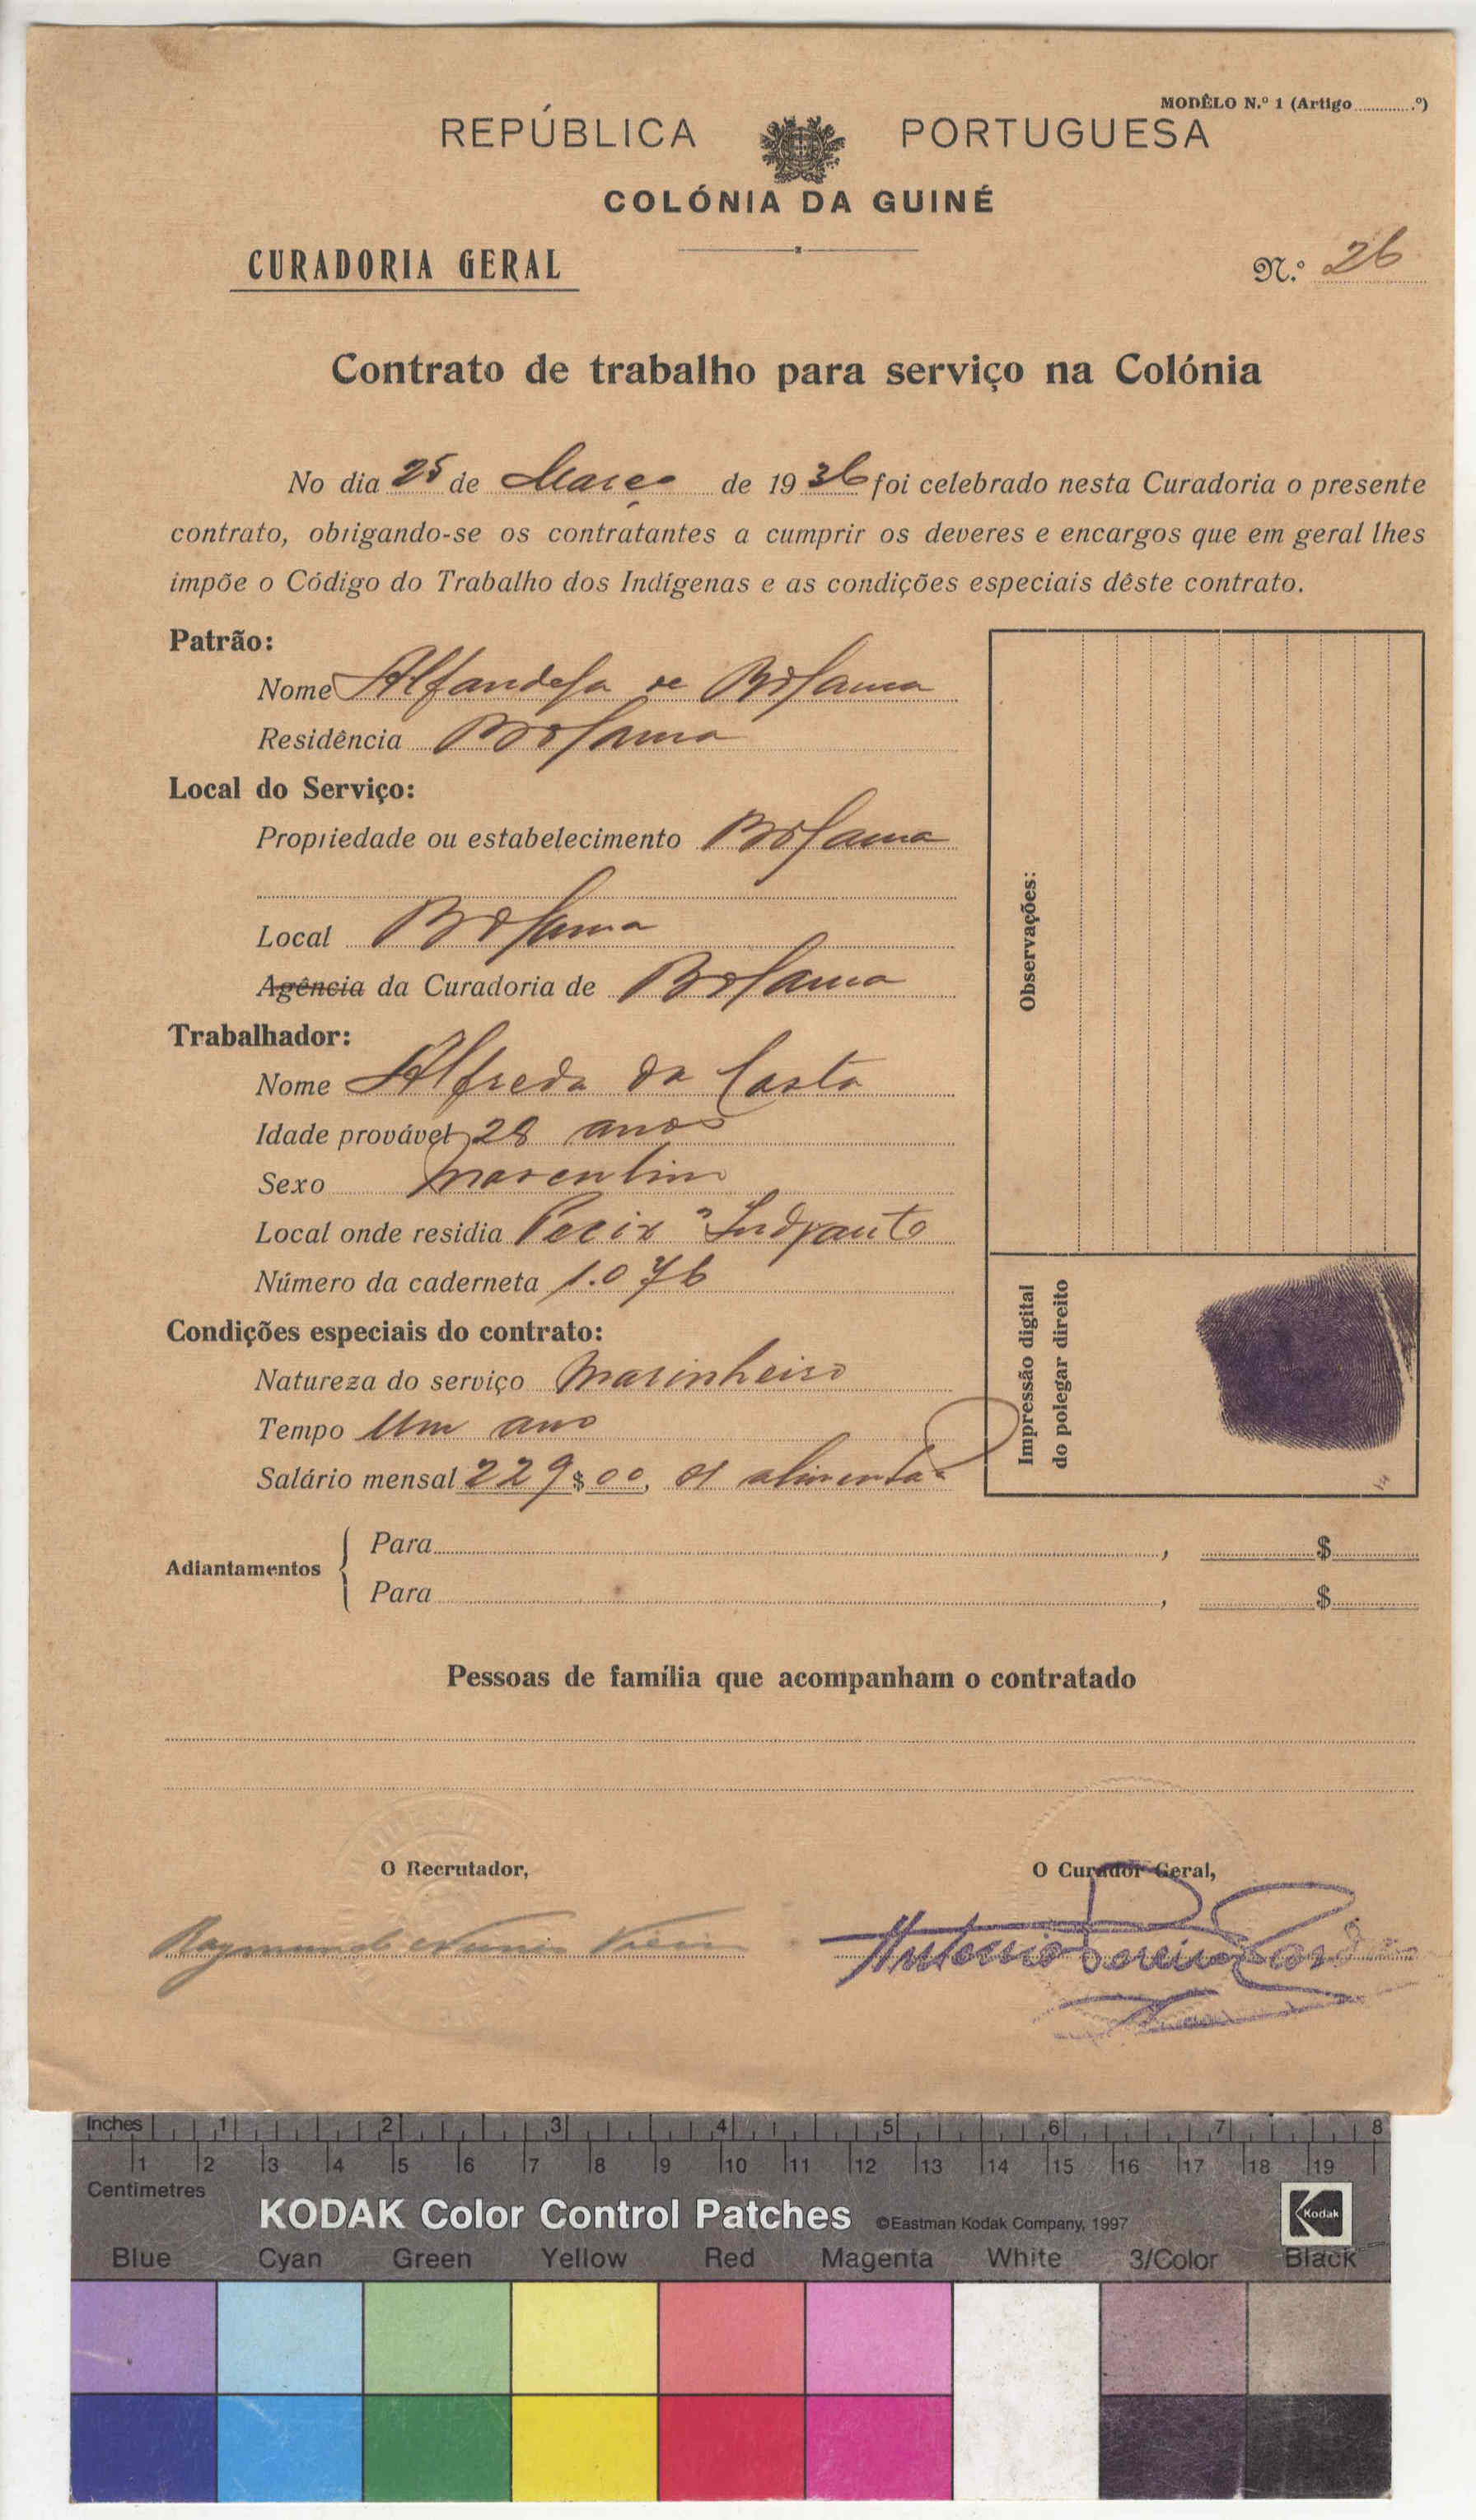 MODÊLO N.º 1 (Artigo ............º)
REPÚBLICA PORTUGUESA
COLÓNIA DA GUINÉ
CURADORIA GERAL
N.º 26
Contrato de trabalho para serviço na Colónia
No dia 25 de Março de 1936 foi celebrado nesta Curadoria o presente
contrato, obrigando-se os contratantes a cumprir os deveres e encargos que em geral lhes
impõe o Código do Trabalho dos Indígenas e as condições especiais dêste contrato.
Patrão:
Nome Alfandega de Bolama
Residência Bolama
Local do Serviço:
Propriedade ou estabelecimento Bolama
Local Bolama
Agência da Curadoria de Bolama
Trabalhador:
Nome Alfredo da Costa
Idade provável 28 anos
Sexo Masculino
Local onde residia
Número da caderneta 1.076
Condições especiais do contrato:
Natureza do serviço Marinheiro
Tempo Um ano
Salário mensal 229$00,
Observações:
Impressão digital
do polegar direito
Adiantamentos
Para , $
Para , $
Pessoas de família que acompanham o contratado
O Recrutador,
O Curador Geral,
Raymundo Nunes
Antonio Pereira Cardoso
Inches 1 2 3 4 5 6 7 8
1 2 3 4 5 6 7 8 9 10 11 12 13 14 15 16 17 18 19
Centimetres
KODAK Color Control Patches ©Eastman Kodak Company, 1997 Kodak
Blue Cyan Green Yellow Red Magenta White 3/Color Black